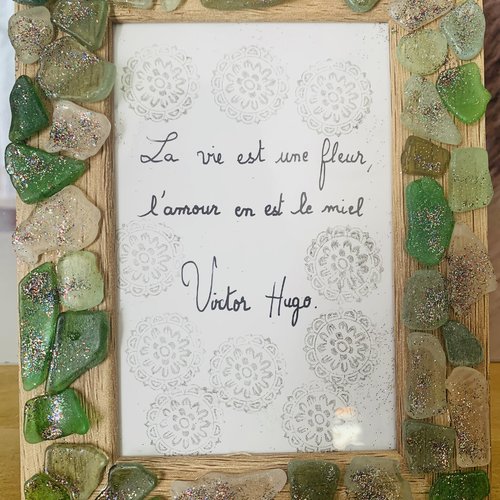 La vie est une fleur,
l'amour en est le miel
Victor Hugo.